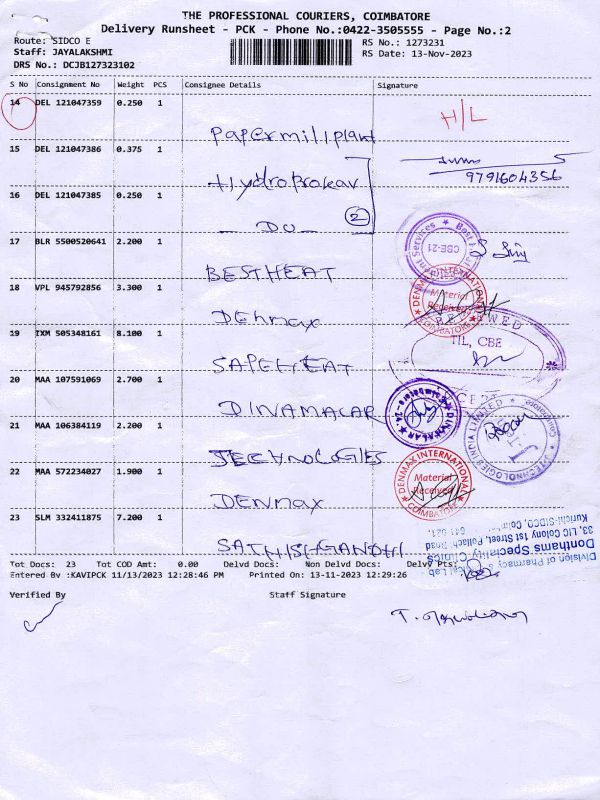 THE PROFESSIONAL COURIERS, COIMBATORE
Delivery Runsheet - PCK - Phone No.:0422-3505555 - Page No.:2
Route: SIDCO E
Staff: JAYALAKSHMI
DRS No.: DCJB127323102
RS No.: 1273231
RS Date: 13-Nov-2023
S No Consignment No Weight PCS Consignee Details Signature
14 DEL 121047359 0.250 1 Papermill plant H/L
15 DEL 121047386 0.375 1 9791604356
16 DEL 121047385 0.250 1 - DO - 2
17 BLR 5500520641 2.200 1 BESTHEAT
18 VPL 945792856 3.300 1 Denmax
19 IXM 505348161 8.100 1
20 MAA 107591069 2.700 1 DINAMALAR
21 MAA 106384119 2.200 1 TECHNOLOGIES
22 MAA 572234027 1.900 1 DENMAX
23 SLM 332411875 7.200 1 SATHISH GANDHI
CBE-21
DENMAX INTERNATIONAL
Material
Received
COIMBATORE
TIL, CBE
DINAMALAR
TECHNOLOGIES INDIA LIMITED
DENMAX INTERNATIONAL
Material
Received
COIMBATORE
Division of Pharmacy &
Donthams Speciality Clinics
33, LIC Colony 1st Street, Pollachi Road
Kurichi-SIDCO,
Tot Docs: 23 Tot COD Amt: 0.00 Delvd Docs: Non Delvd Docs: Delvy Pts:
Entered By :KAVIPCK 11/13/2023 12:28:46 PM Printed On: 13-11-2023 12:29:26
Verified By Staff Signature